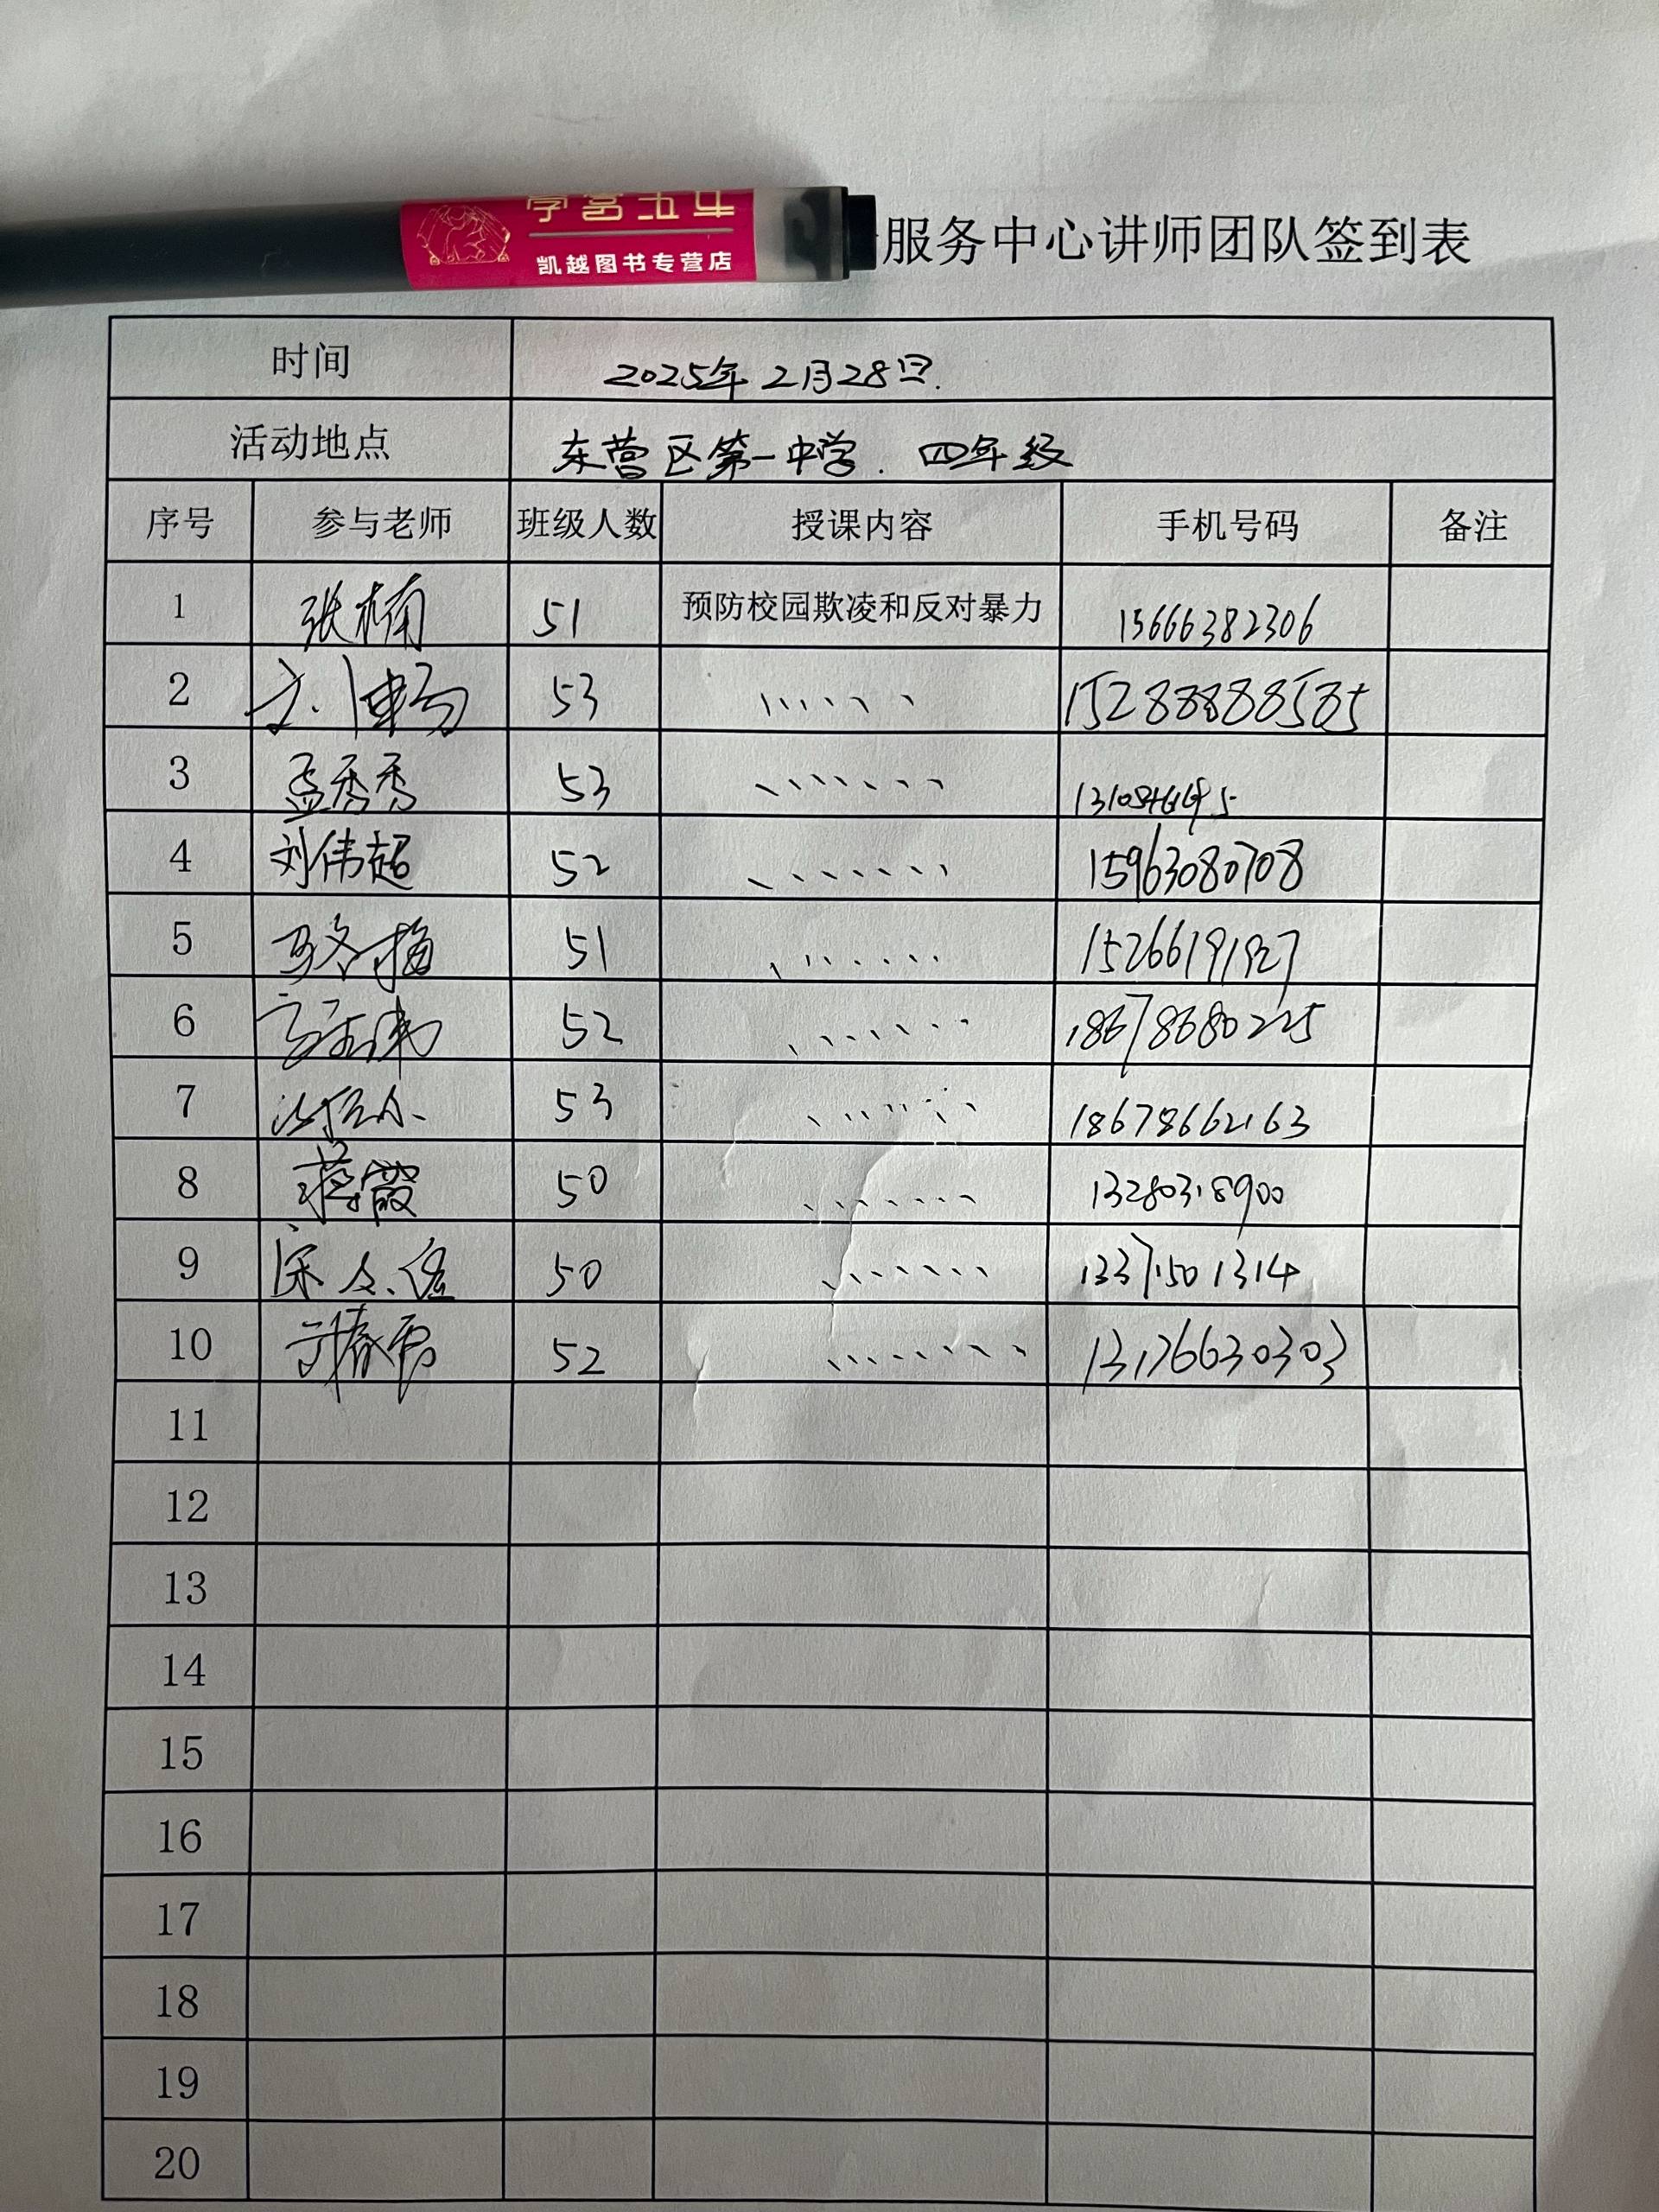 凯越图书专营店
服务中心讲师团队签到表
时间 2025年2月28日.
活动地点 东营区第一中学. 四年级
序号 参与老师 班级人数 授课内容 手机号码 备注
1 张楠 51 预防校园欺凌和反对暴力 15666382306
2 53 、、、、、、 15288888585
3 孟秀秀 53 、、、、、、、
4 刘伟超 52 、、、、、、、 15963080708
5 51 、、、、、、、
6 52 、、、、、、、 18678680225
7 53 、、、、、、、 18678662163
8 蒋霞 50 、、、、、、、 13280318900
9 50 、、、、、、、 13371501314
10 52 、、、、、、、、 13176630303
11
12
13
14
15
16
17
18
19
20